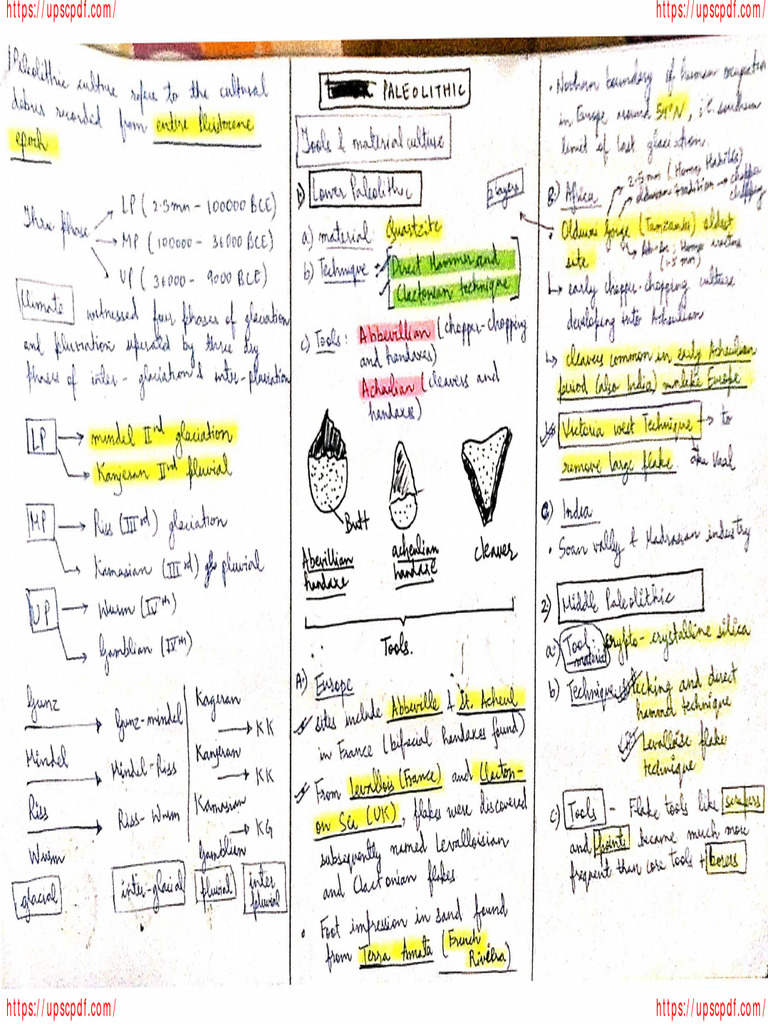 https://upscpdf.com/
https://upscpdf.com/
Paleolithic culture refers to the cultural
debris recorded from entire Pleistocene
epoch
Three phase → LP (2.5mn - 100000 BCE)
→ MP (100000 - 36000 BCE)
UP (36000 - 9000 BCE)
Climate witnessed four phases of glaciation
and pluviation seperated by three dry
phases of inter-glaciation & inter-pluviation
LP → mindel IInd glaciation
→ Kanjeran IInd fluvial
MP → Riss (IIIrd) glaciation
→ Kamasian (IIIrd) pluvial
UP → Wurm (IVth)
→ Gamblian (IVth)
Gunz
Gunz-mindel
Mindel
Mindel-Riss
Riss
Riss-Wurm
Wurm
Kageran
→ KK
Kanjeran
→ KK
Kamasian
→ KG
Gamblian
glacial
inter-glacial
pluvial
inter
pluvial
PALEOLITHIC
Tools & material culture
1) Lower Paleolithic
a) material: Quartzite
b) Technique: Direct Hammer and
Clactonian technique
c) Tools: Abbevillian (chopper-chopping
and handaxes)
Acheulian (cleavers and
handaxes)
Butt
Abevillian
handaxe
acheulian
handaxe
cleaver
Tools.
A) Europe
sites include Abbeville & St. Acheul
in France (bifacial handaxes found)
From Levallois (France) and Clacton-
on Sea (UK), flakes were discovered
subsequently named Levalloisian
and Clactonian flakes
• Foot impression in sand found
from Terra Amata (French
Riviera)
• Northern boundary of human occupation
in Europe around 54°N, i.e. southern
limit of last glaciation.
B) Africa
2.5 mn (Homo Habilis)
oldowan tradition → chopper
chopping
layers
• Olduvai Gorge (Tanzania) oldest
site
Homo erectus
(1.5 mn)
↳ early chopper-chopping culture
developing into Acheulian
↳ cleavers common in early Acheulian
period (also India) unlike Europe
Victoria west Technique → to
remove large flake. aka Vaal
C) India
• Soan vally & Madrasian industry
2) Middle Paleolithic
a) Tool material crypto-crystalline silica
b) Technique: Pecking and direct
hammer technique
Levalloise flake
technique
c) Tools - Flake tools like scrapers
and points became much more
frequent than core tools + borers
https://upscpdf.com/
https://upscpdf.com/